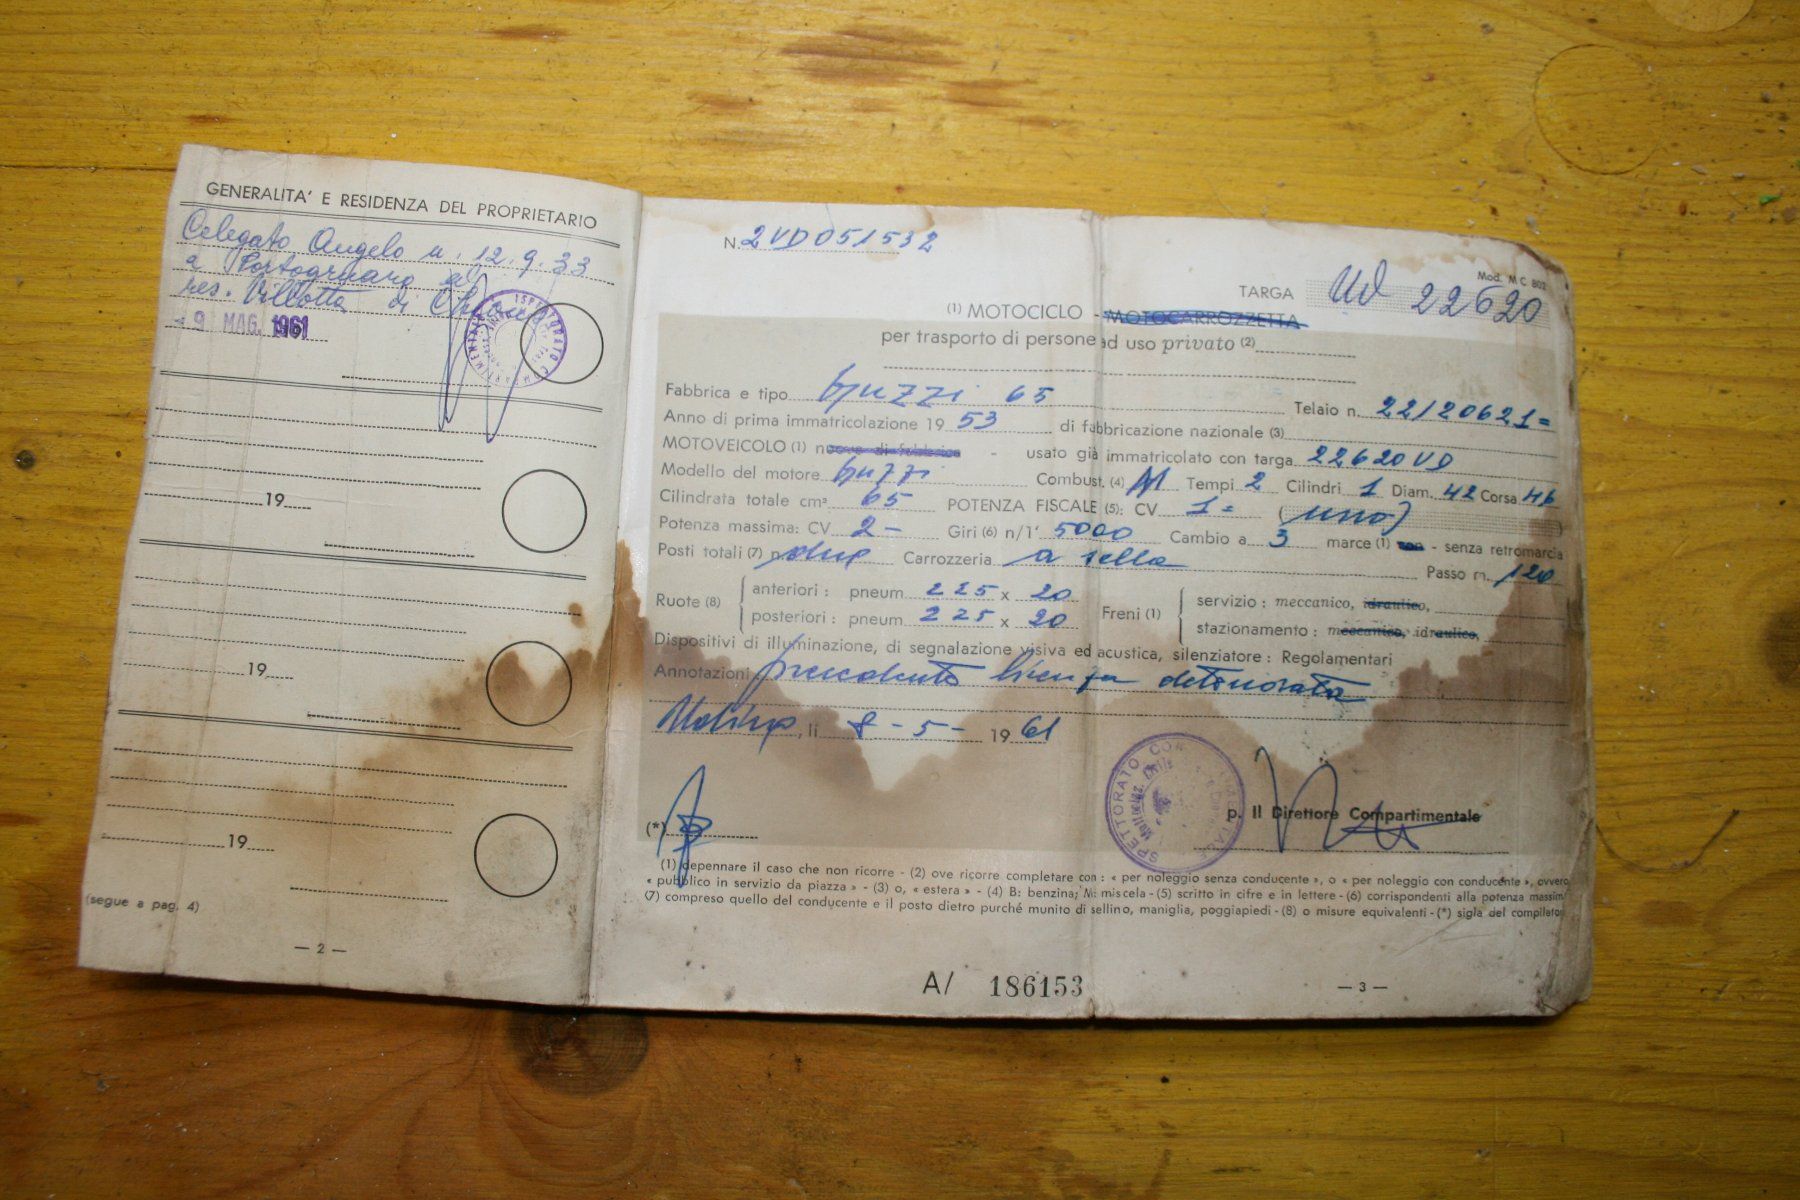 GENERALITA' E RESIDENZA DEL PROPRIETARIO
Celegato Angelo n. 12.9.33
a Portogruaro e
res. Villotta di Chions
9 MAG. 1961
19
19
19
(segue a pag. 4)
— 2 —
N. 2UD051532
Mod. M C 802
TARGA UD 22620
(1) MOTOCICLO - MOTOCARROZZETTA
per trasporto di persone ad uso privato (2)
Fabbrica e tipo Guzzi 65 Telaio n. 22/20621=
Anno di prima immatricolazione 19 53 di fabbricazione nazionale (3)
MOTOVEICOLO (1) nuovo di fabbrica - usato già immatricolato con targa 22620 UD
Modello del motore Guzzi Combust. (4) M Tempi 2 Cilindri 1 Diam. 42 Corsa 46
Cilindrata totale cm³ 65 POTENZA FISCALE (5): CV 1= (uno)
Potenza massima: CV 2- Giri (6) n/1' 5000 Cambio a 3 marce (1) con - senza retromarcia
Posti totali (7) n. due Carrozzeria a sella Passo m. 120
Ruote (8) anteriori: pneum. 225 x 20 Freni (1) servizio: meccanico, idraulico,
posteriori: pneum. 225 x 20 stazionamento: meccanico, idraulico,
Dispositivi di illuminazione, di segnalazione visiva ed acustica, silenziatore: Regolamentari
Annotazioni precedente licenza deteriorata
li 8-5- 19 61
ISPETTORATO COMPARTIMENTALE
(*)
p. Il Direttore Compartimentale
(1) depennare il caso che non ricorre - (2) ove ricorre completare con: « per noleggio senza conducente », o « per noleggio con conducente », ovvero
« pubblico in servizio da piazza » - (3) o, « estera » - (4) B: benzina; M: miscela - (5) scritto in cifre e in lettere - (6) corrispondenti alla potenza massima
(7) compreso quello del conducente e il posto dietro purché munito di sellino, maniglia, poggiapiedi - (8) o misure equivalenti - (*) sigla del compilatore
A/ 186153
— 3 —